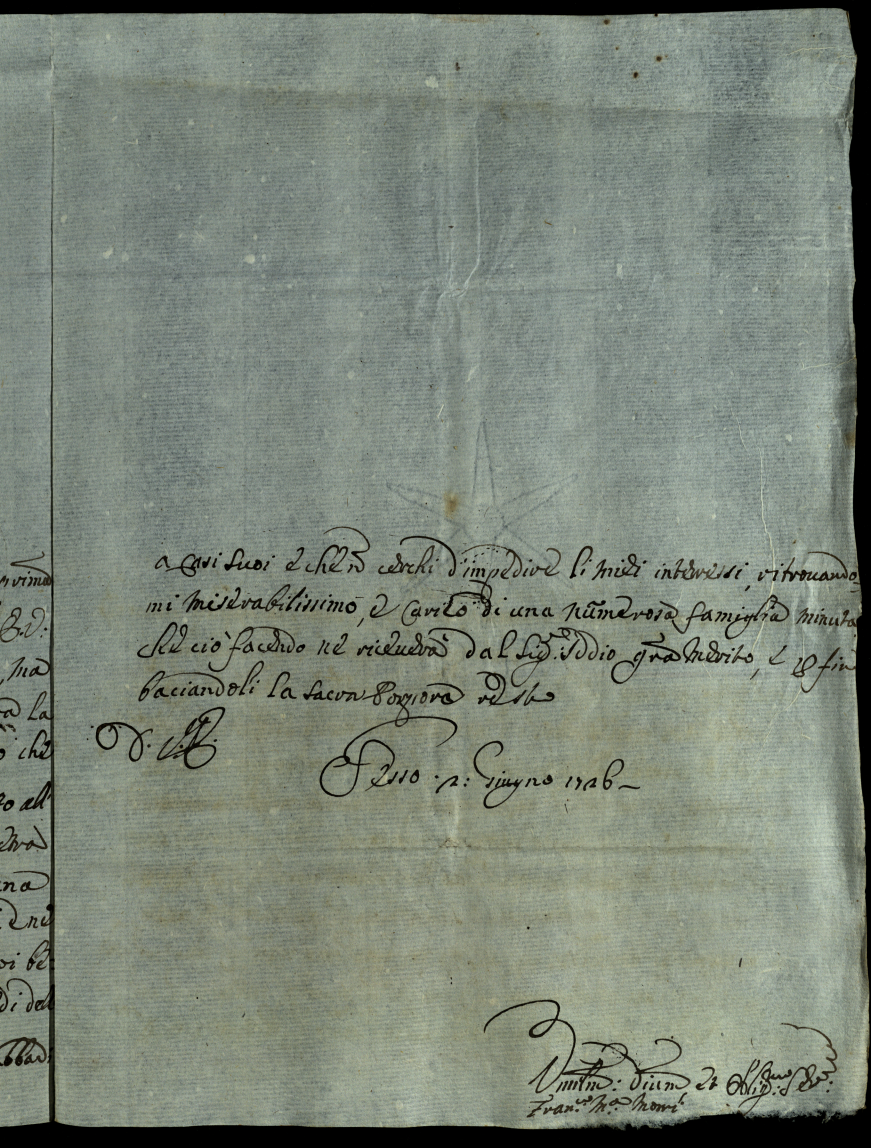 ma
la
che
all'
una
di del
a casi suoi e che ñ cerchi d'impedire li miei interessi, ritrouando
mi miserabilissimo, e Carico di una numerosa famiglia minuta
che ciò facendo ne riceuerà dal Sig.re Iddio grã merito, e fine
baciandoli la sacra Porpora resto
D.
Fesso 2: Giugno 1726
Vmilm: Dium et Oblig:mo Ser:
Fran.co M.a